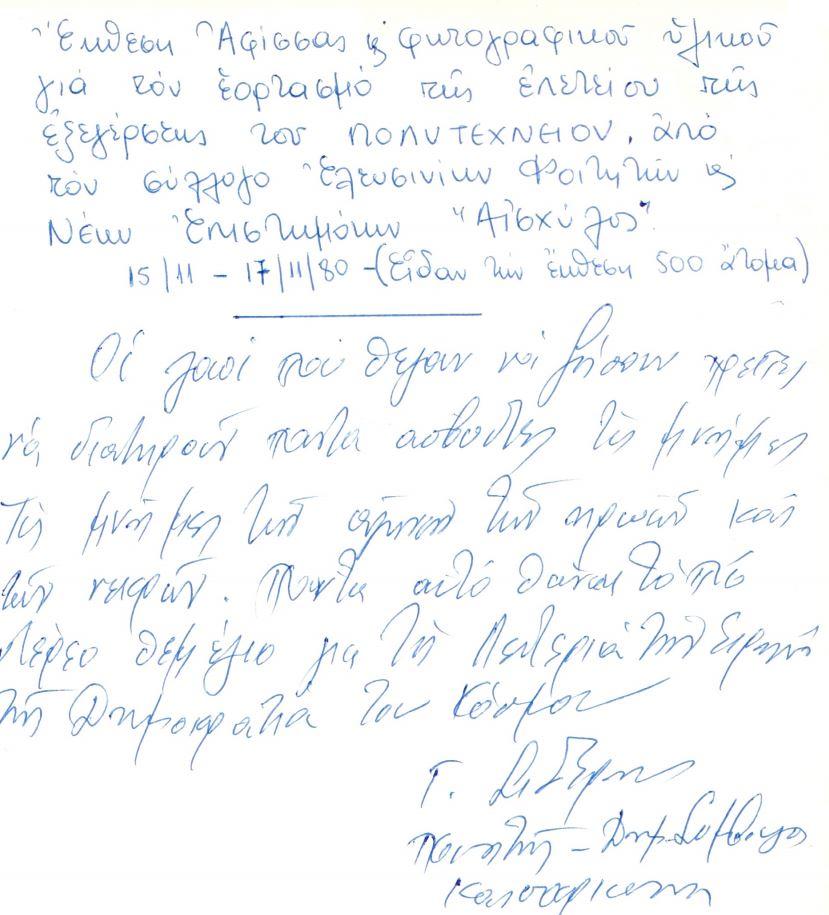 Ἔκθεση Ἀφίσσας ϗ φωτογραφικοῦ ὑλικοῦ
γιά τόν ἑορτασμό τῆς ἐπετείου τῆς
ἐξεγέρσεως του ΠΟΛΥΤΕΧΝΕΙΟΥ, ἀπό
τόν σύλλογο Ἐλευσινίων Φοιτητῶν ϗ
Νέων Ἐπιστημόνων "Αἰσχύλος".
15/11 – 17/11/80 – (Εἶδαν τήν ἔκθεση 500 ἄτομα)
Οἱ λαοί πού θέλουν νά ζήσουν πρέπει
νά διατηροῦν πάντα ἄσβυστες τίς μνήμες
Τίς μνήμες τῶν ἀγώνων τῶν ἡρώων καί
τῶν νεκρῶν. Πάντα αὐτό θάναι τό πιό
στέρεο θεμέλιο γιά τή Λευτεριά τήν Εἰρήνη
τή Δημοκρατία του Κόσμου
Γ.
Ποιητής – Δημ. Σύμβουλος
Καισαριανης